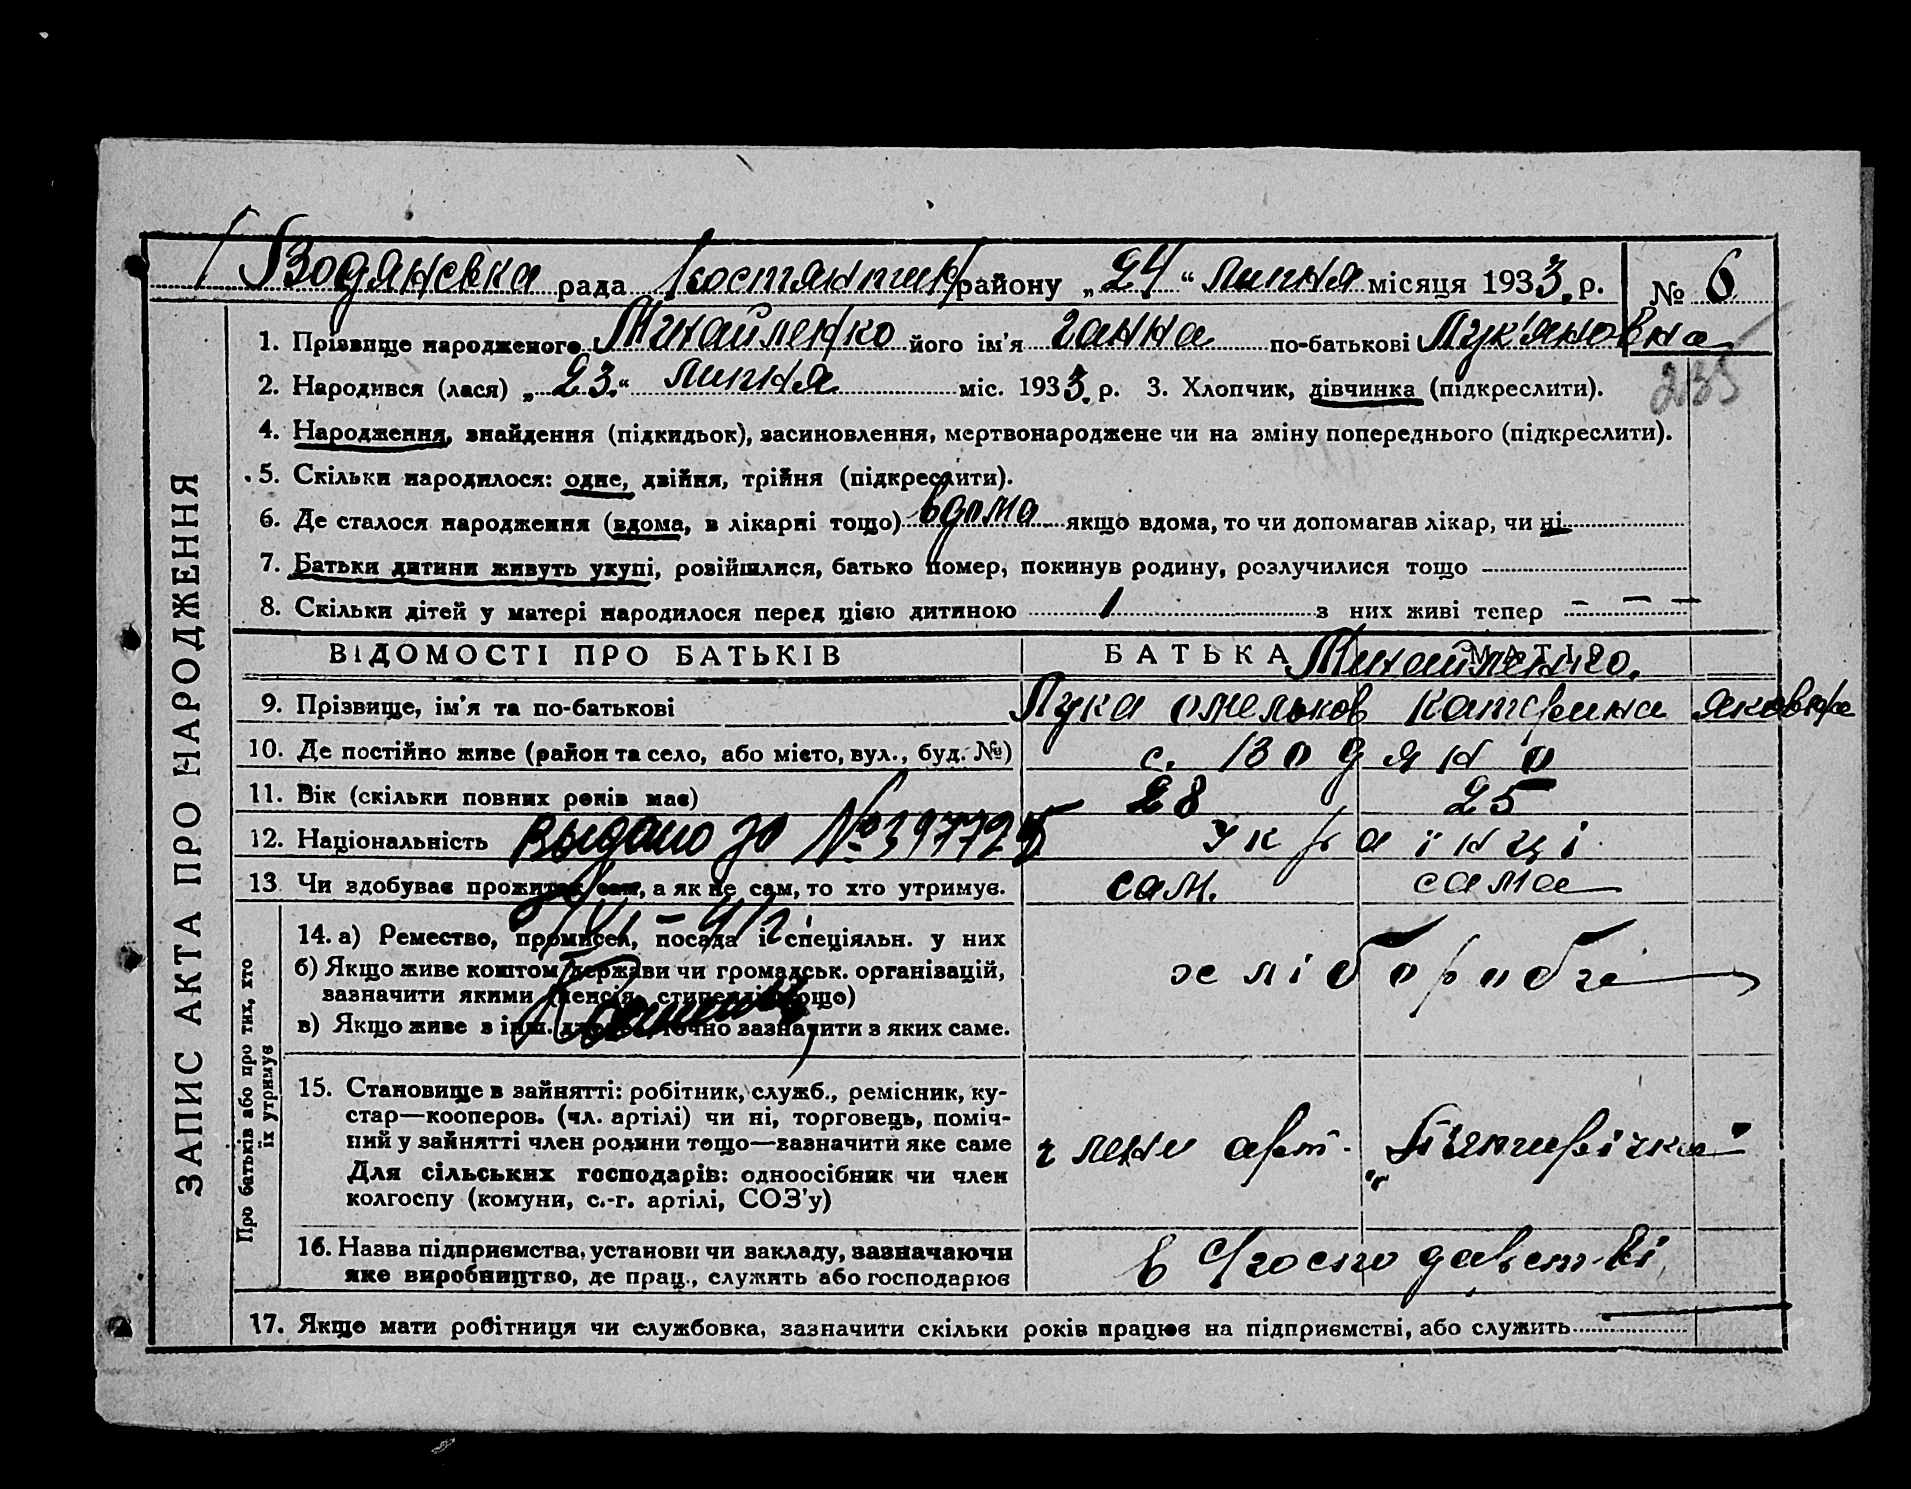 Водянська рада Костянтин району „24“ липня місяця 1933. р. № 6
1. Прізвище народженого Михайленко його ім'я Ганна по-батькові Лук'яновна
235
2. Народився (лася) „23.“ липня міс. 1933. р. 3. Хлопчик, дівчинка (підкреслити).
4. Народження, знайдення (підкидьок), засиновлення, мертвонароджене чи на зміну попереднього (підкреслити).
5. Скільки народилося: одне, двійня, трійня (підкреслити).
6. Де сталося народження (вдома, в лікарні тощо) вдома якщо вдома, то чи допомагав лікар, чи ні
7. Батьки дитини живуть укупі, розійшлися, батько помер, покинув родину, розлучилися тощо
8. Скільки дітей у матері народилося перед цією дитиною 1 з них живі тепер – – –
ЗАПИС АКТА ПРО НАРОДЖЕННЯ
ВІДОМОСТІ ПРО БАТЬКІВ БАТЬКА МАТІР
Михайленко.
9. Прізвище, ім'я та по-батькові Лука омельков катерина яковл
10. Де постійно живе (район та село, або місто, вул., буд. №) с. Водяно
11. Вік (скільки повних років має) 28 25
12. Національність українці
Выдано № 397725
13 Чи здобуває прожиток сам, а як не сам, то хто утримує. сам. сама
Про батьків або про тих, хто їх утримує
14. а) Ремество, промисел, посада і спеціяльн. у них хлібороби
б) Якщо живе коштом держави чи громадськ. організацій,
зазначити якими (пенсія, стипендія тощо)
в) Якщо живе з інш. точно зазначити з яких саме.
15. Становище в зайнятті: робітник, служб., ремісник, ку-
стар—кооперов. (чл. артілі) чи ні, торговець, поміч-
ний у зайнятті член родини тощо—зазначити яке саме
члени арт.
Для сільських господарів: одноосібник чи член
колгоспу (комуни, с.-г. артілі, СОЗ'у)
16. Назва підприємства, установи чи закладу, зазначаючи
яке виробництво, де прац., служить або господарює
в
17. Якщо мати робітниця чи службовка, зазначити скільки років працює на підприємстві, або служить